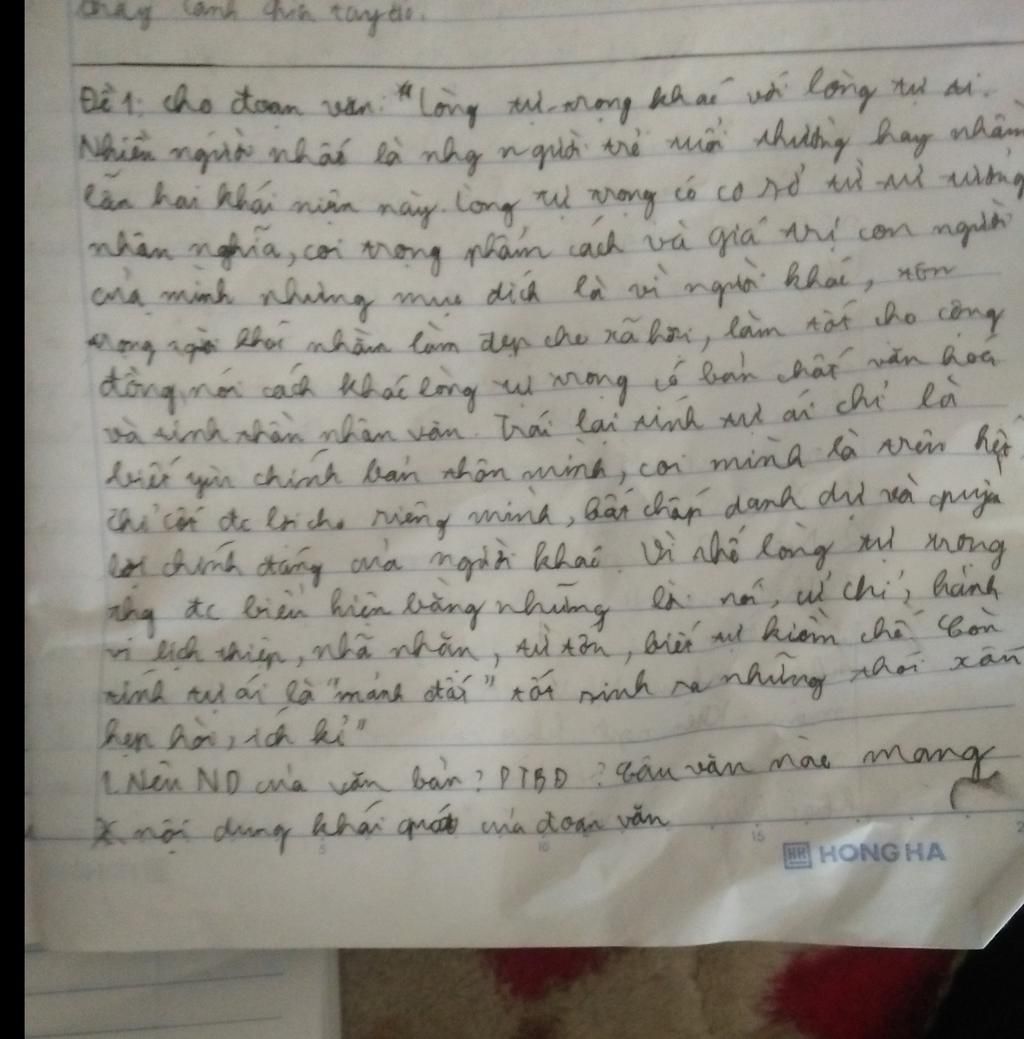 thay
Đề 1: Cho đoạn văn: "Lòng tự trọng khác với lòng tự ái.
Nhiều người nhất là nhg người trẻ tuổi thường hay nhầm
lẫn hai khái niệm này. Lòng tự trọng có cơ sở từ tư tưởng
nhân nghĩa, coi trọng phẩm cách và giá trị con người
của mình nhưng mục đích là vì người khác, tôn
trọng khác nhằm làm đẹp cho xã hội, làm tốt cho cộng
đồng, nói cách khác lòng tự trọng có bản chất văn hoá
và tinh thần nhân văn. Trái lại tính tự ái chỉ là
biết yêu chính bản thân mình, coi mình là trên hết
chỉ cốt đc lợi cho riêng mình, bất chấp danh dự và quyền
lợi chính đáng của người khác. Vì thế lòng tự trọng
đc biểu hiện bằng những lời nói, cử chỉ, hành
vi lịch thiệp, nhã nhặn, từ tốn, biết tự kiềm chế. Còn
tính tự ái là "mảnh đất" tốt sinh ra những thói xấu
hẹp hòi, ích kỉ"
1. Nêu ND của văn bản? PTBĐ? Câu văn nào mang
nội dung khái quát của đoạn văn
5 10 15 2
HH HONG HA